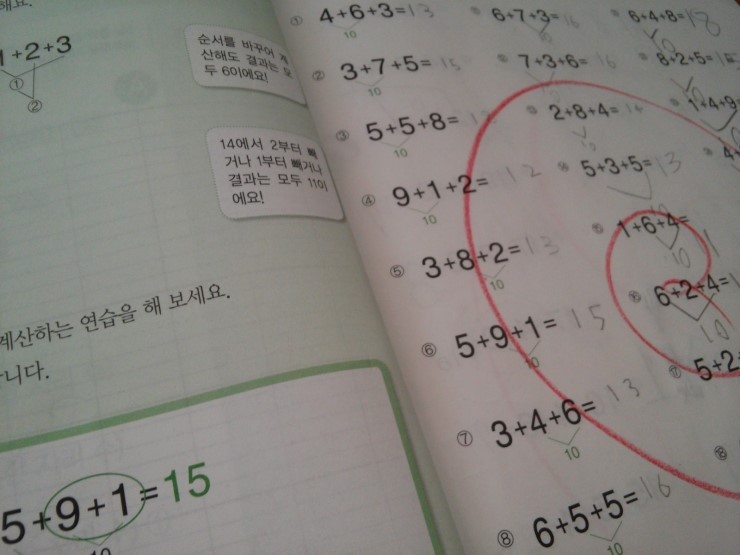 1+2+3
①
②
순서를 바꾸어 계
산해도 결과는 모
두 6이에요!
14에서 2부터 빼
거나 1부터 빼거나
결과는 모두 11이
에요!
계산하는 연습을 해 보세요.
니다.
5+9+1=15
10
① 4+6+3=13
10
② 3+7+5=15
10
③ 5+5+8=
10
④ 9+1+2=12
10
⑤ 3+8+2=13
10
⑥ 5+9+1=15
10
⑦ 3+4+6=13
10
⑧ 6+5+5=16
10
6+7+3=16
7+3+6=16
2+8+4=14
10
5+3+5=13
10
1+6+4=11
10
6+2+4=1
10
5+2+
6+4+8=18
10
8+2+5=15
1+4+9
4+
⑱